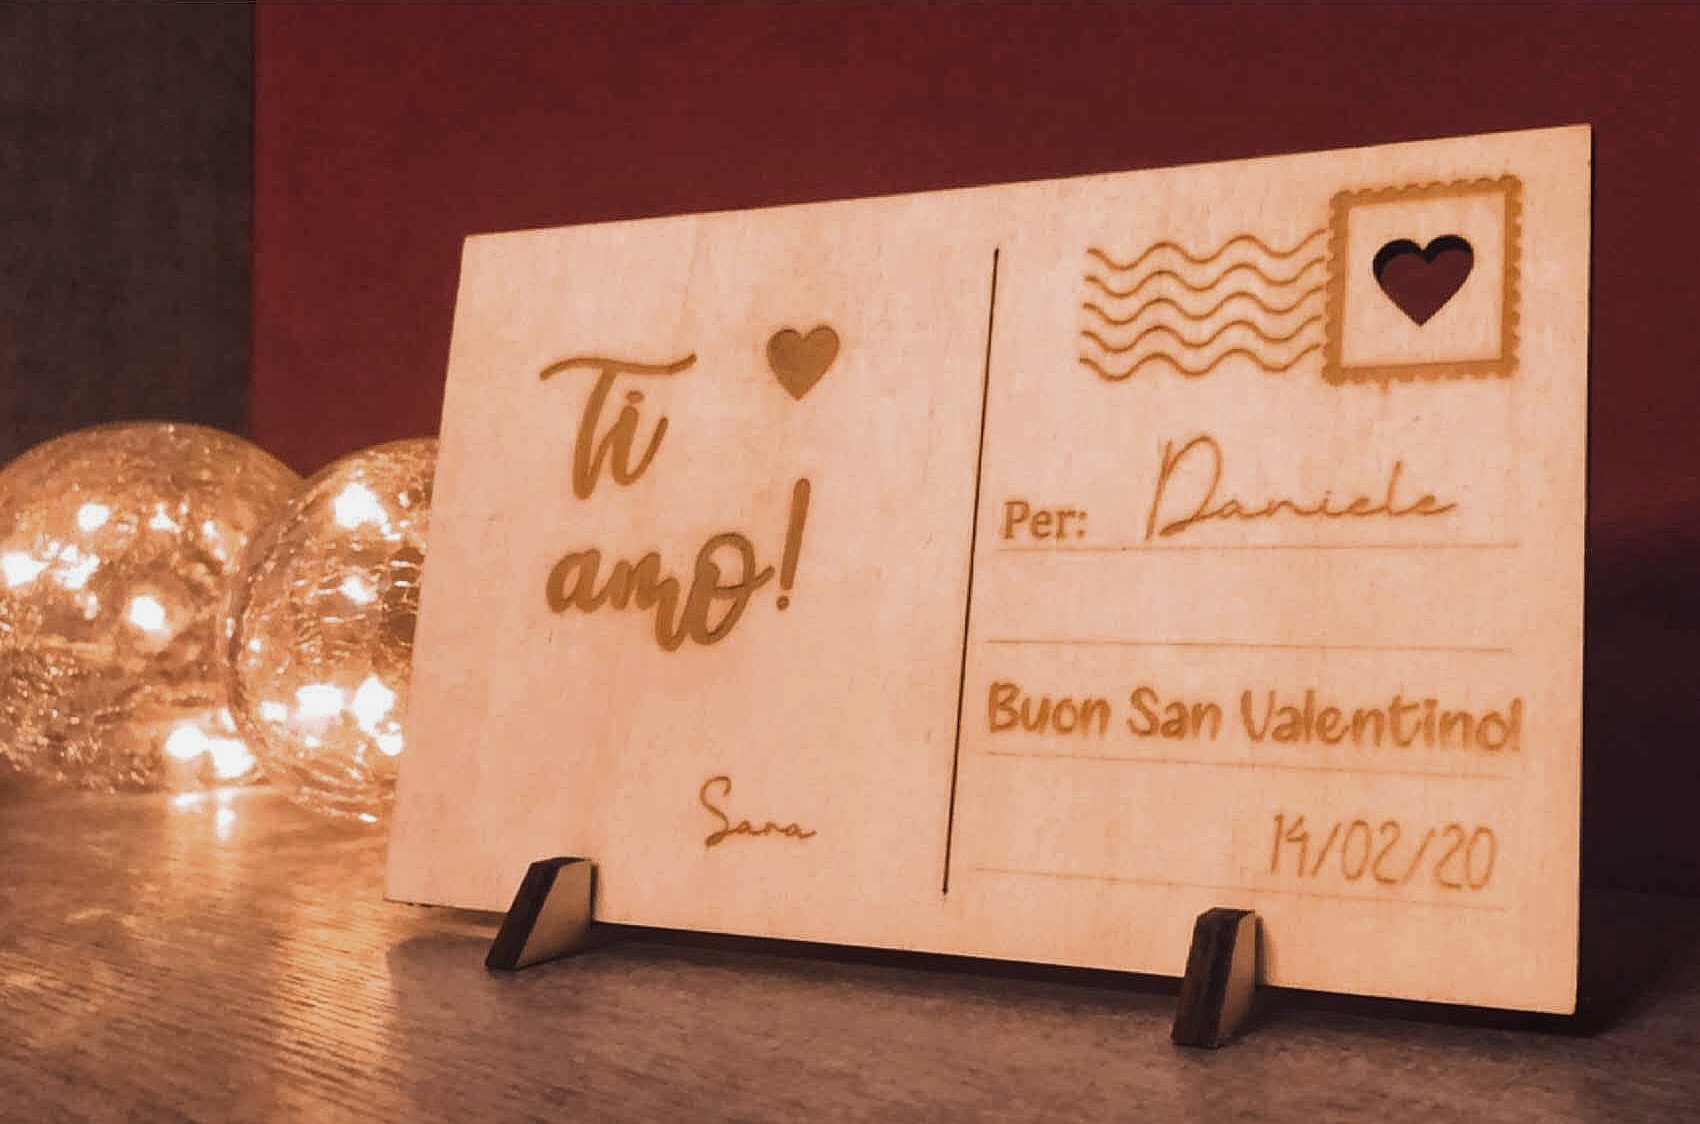 Ti
amo!
Sara
Per: Daniele
Buon San Valentino!
14/02/20